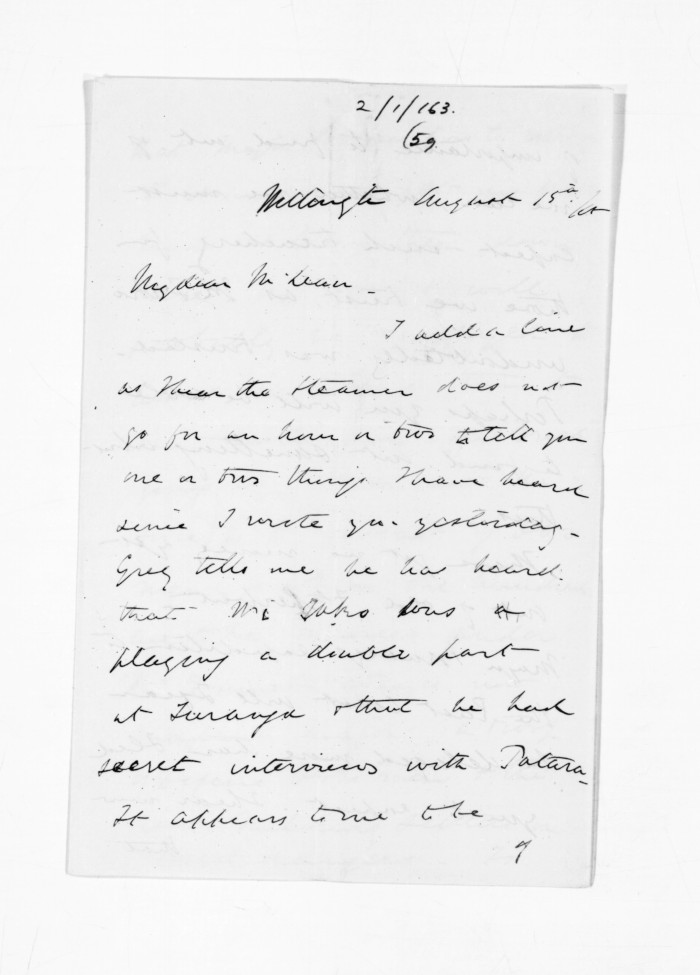 2/1/163.
(59.
Wellington August 15th
My dear McLean -
I add a line
as I hear the steamer does not
go for an hour or two to tell you
one or two things I have heard
since I wrote you yesterday -
Grey tells me he has heard
that Wi Tako was
playing a double part
at Turanga & that he had
secret interviews with Patara -
It appears to me to be